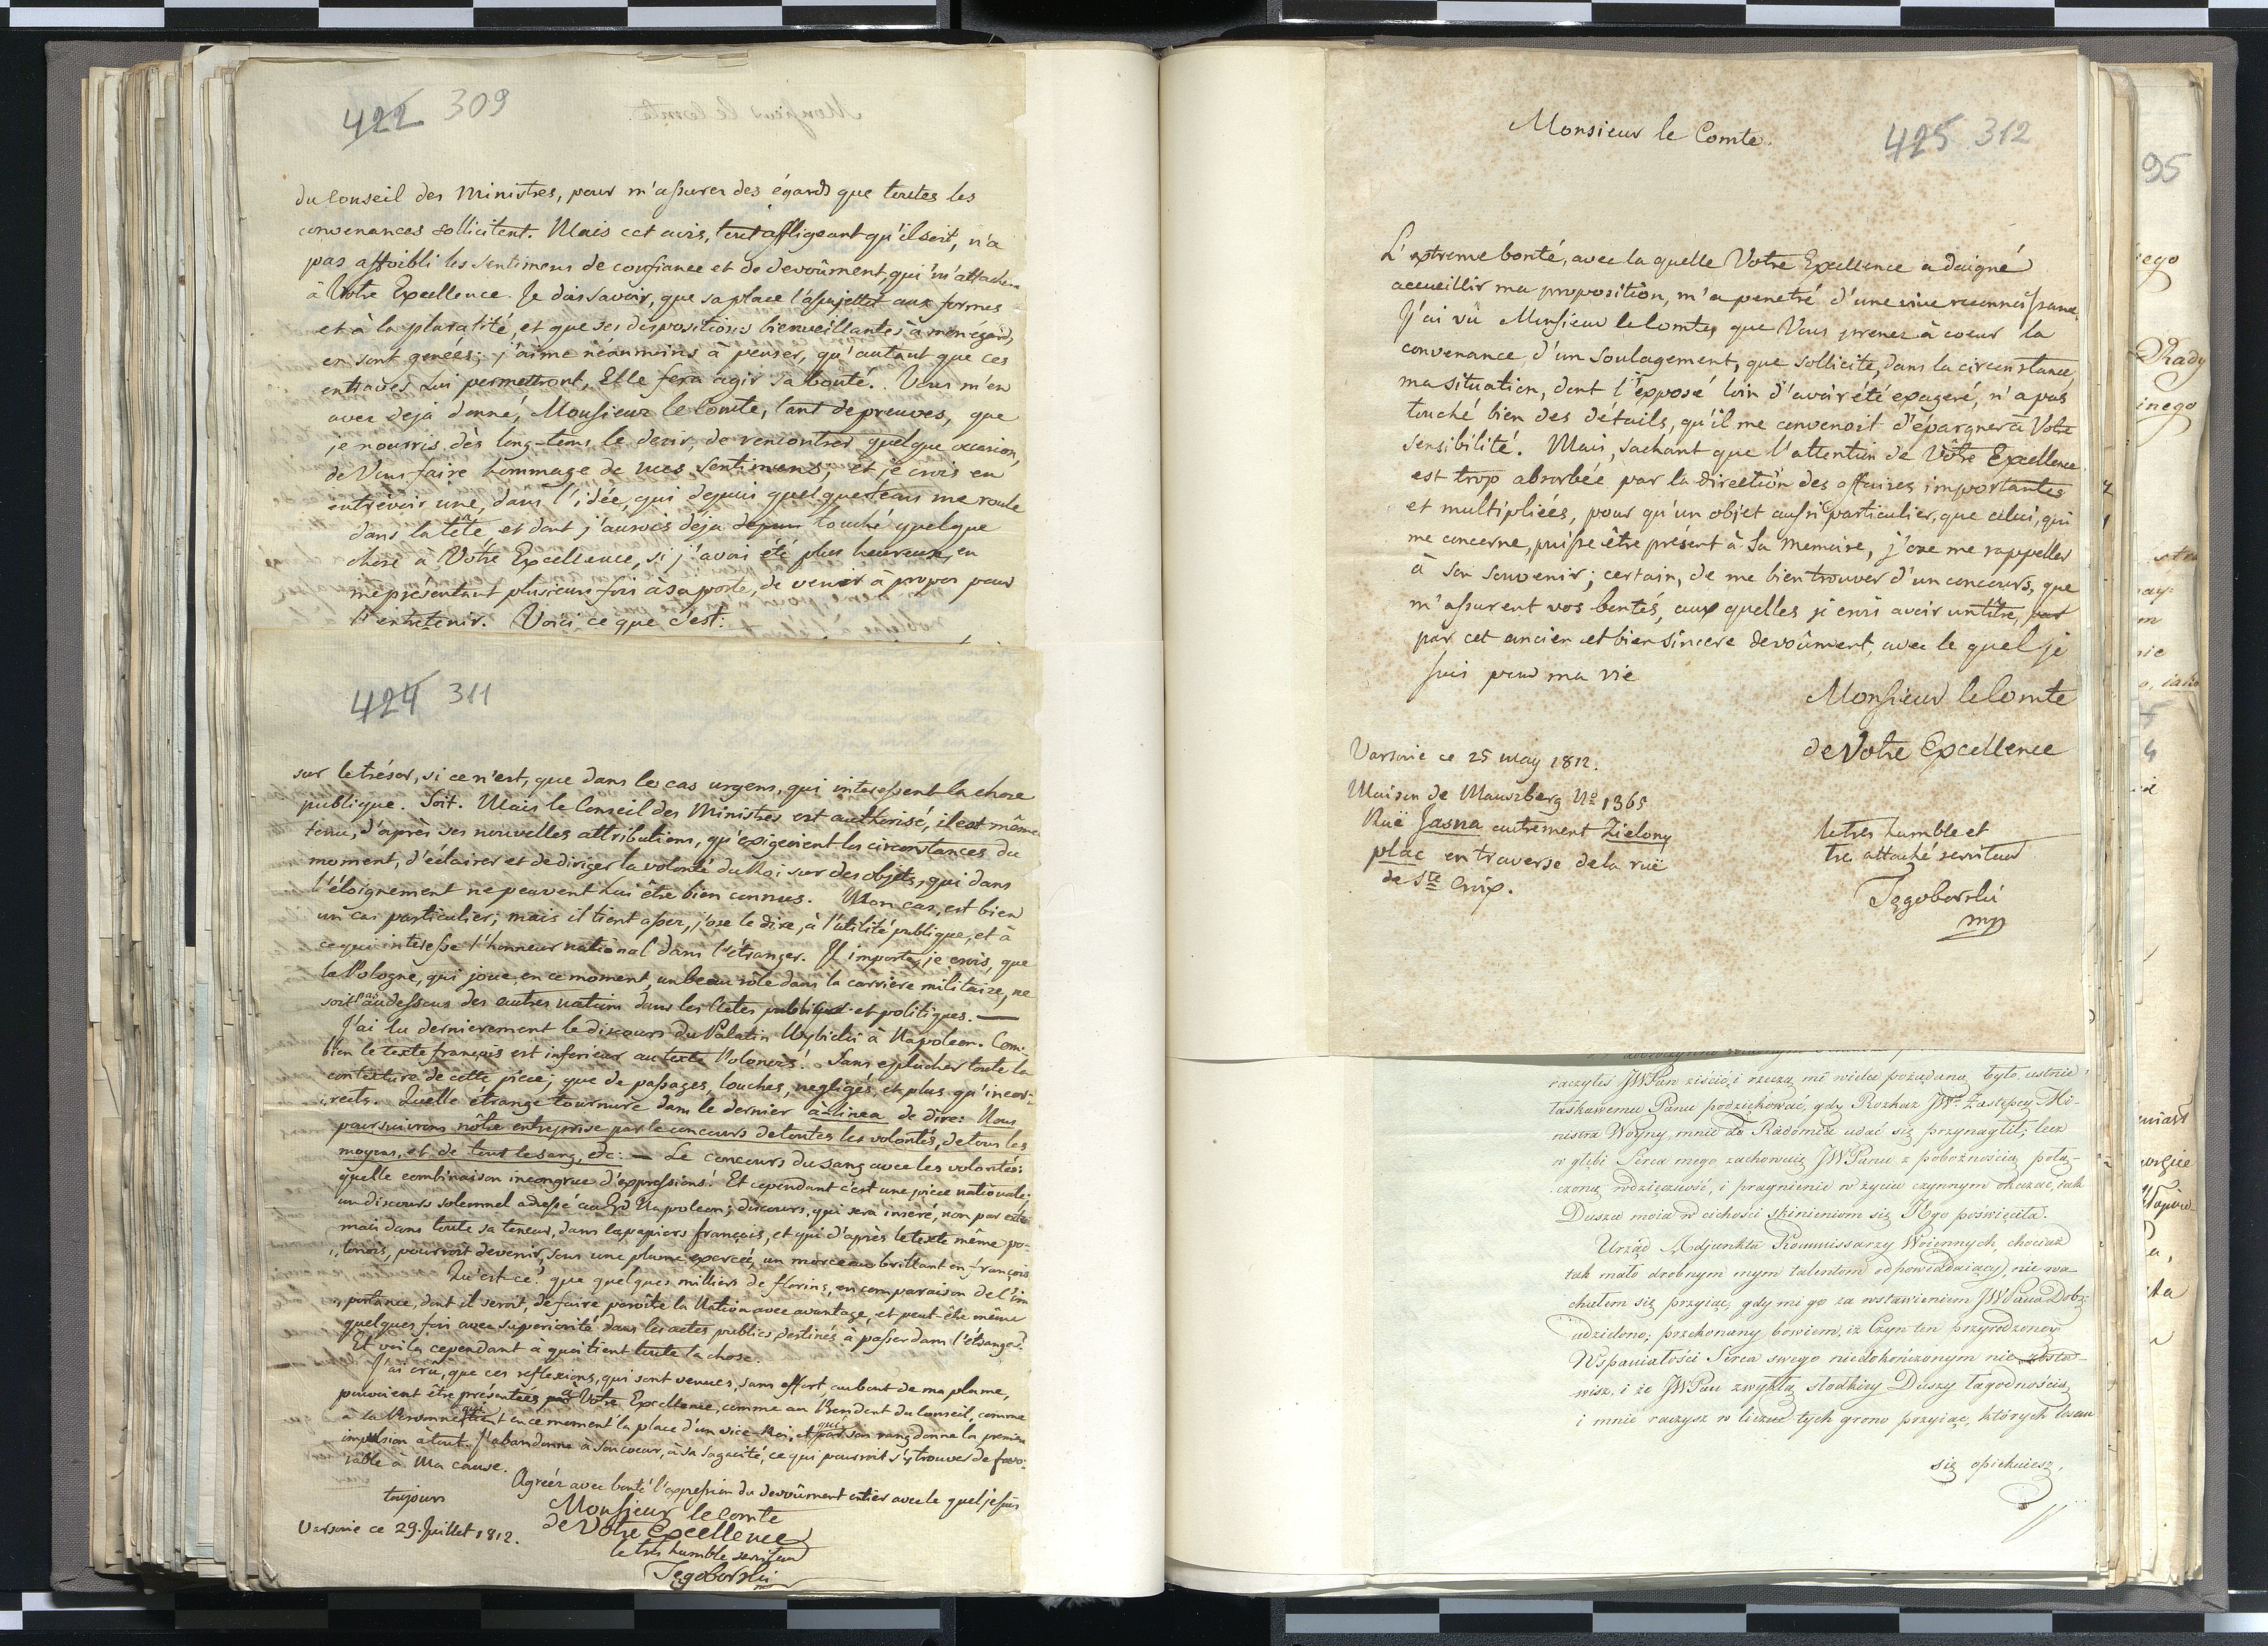 422 309
du Conseil des Ministres, pour m'assurer des égards que toutes les
convenances sollicitent. Mais cet avis, tout affligeant qu'il soit, n'a
pas affoibli les sentimens de confiance et de devoûment, qui m'attachent
à Votre Excellence. Je dois savoir, que sa place l'assujettit aux formes
et à la pluralité, et que ses dispositions bienveillantes à mon egard,
en sont genées; j'aime néanmoins à penser, qu'autant que ces
entraves Lui permettront, Elle fera agir sa bonté. Vous m'en
avez deja donné, Monsieur le Comte, tant de preuves, que
je nourris dès long-tems le desir, de rencontrer quelque occasion,
de Vous faire hommage de mes sentimens; et je crois en
entrevoir une, dans l'idée, qui depuis quelque tems me roule
dans la tête, et dont j'aurois deja depuis touché quelque
chose à Votre Excellence, si j'avois été plus heureux, en
me présentant plusieurs fois à sa porte, de venir à propos pour
l'entretenir. Voici ce que c'est:
424 311
sur le trésor, si ce n'est, que dans les cas urgens, qui interessent la chose
publique. Soit. Mais le Conseil des Ministres est authorisé, il est même
tenu, d'après ses nouvelles attributions, qu'exigeoient les circonstances du
moment, d'éclairer et de diriger la volonté du Roi sur des objets, qui dans
l'éloignement ne peuvent Lui être bien connus. Mon cas, est bien
un cas particulier; mais il tient assez, j'ose le dire, à l'utilité publique, et à
ce qui interesse l'honneur national dans l'étranger. Il importe, je crois, que
la Pologne, qui joue, en ce moment, un beau rôle dans la carriere militaire, ne
soit au dessous des autres nations dans les Actes publics et politiques. —
J'ai lu dernierement le discours du Palatin Wybicki à Napoleon. Com-
bien le texte françois est inferieur au texte Polonois! Sans eplucher toute la
contexture de cette piece; que de passages, louches, negligés, et plus qu'incor-
rects. Quelle étrange tournure dans le dernier à-linea de dire: Nous
poursuivrons nôtre entreprise par le concours de toutes les volontés, de tous les
moyens, et de tout le sang, etc: — Le concours du sang avec les volontés:
quelle combinaison incongrue d'expressions! Et cependant c'est une piece nationale;
un discours solemnel adressé au Gd Napoleon; discours, qui sera inseré, non par extr.
mais dans toute sa teneur, dans les papiers françois, et qui d'après le texte même po-
lonois, pourroit devenir, sous une plume exercée, un morceau brillant en françois
Qu'est-ce? que quelques milliers de florins, en comparaison de l'im
portance, dont il seroit, de faire paroître la Nation avec avantage, et peut-être même
quelques fois avec superiorité dans les actes publics, destinés à passer dans l'étranger?
Et voila cependant à quoi tient toute la chose.
J'ai crû, que ces reflexions, qui sont venues, sans effort au bout de ma plume,
pouvoient être présentées à Votre Excellence, comme au President du Conseil, comme
à la Personne, qui tient en ce moment la place d'un vice-Roi, et qui par son rang donne la premiere
impulsion à tout. J'abandonne à son coeur, à sa sagacité, ce qui pourroit s'y trouver de favo-
rable à Ma cause.
Agréez avec bonté l'expression du devoûment entier avec le quel je suis
toujours
Monsieur le Comte
de Votre Excellence
Varsovie ce 29. Juillet 1812.
le très humble serviteur
Tęgoborski
Monsieur le Comte.
425 312
L'extreme bonté, avec la quelle Votre Excellence a daigné
accueillir ma proposition, m'a penetré d'une vive reconnoissance.
J'ai vû Monsieur le Comte, que Vous prenez à coeur la
convenance d'un soulagement, que sollicite, dans la circonstance,
ma situation, dont l'exposé loin d'avoir été exageré, n'a pas
touché bien des détails, qu'il me convenoit d'épargner à Votre
sensibilité. Mais, sachant que l'attention de Vôtre Excellence
est trop absorbée par la direction des affaires importantes
et multipliées, pour qu'un objet aussi particulier, que celui, qui
me concerne, puisse être présent à Sa memoire, j'ose me rappeller
à Son souvenir; certain, de me bien trouver d'un concours, que
m'assurent vos bontés, aux quelles je crois avoir un titre, par
par cet ancien et bien sincere devoûment, avec le quel je
suis pour ma vie
Monsieur le Comte
de Votre Excellence
Varsovie ce 25 may 1812.
Maison de Mauszberg No 1365
Ruë Jasna autrement Zielony
plac en traverse de la ruë
de Ste Croix.
le tres humble et
tres attaché serviteur
Tęgoborski
mp
raczyłeś JWPan ziścić, i rzeczą mi wielce pożądaną było, ustnie
łaskawemu Panu podziękować, gdy Rozkaz JWo Zastępcy Mi-
nistra Woyny, mnie do Radomia udać się przynaglił; lecz
w głębi Serca mego zachowuię JWPanu z pobożnością połą-
czoną wdzięczność, i pragnienie w życiu czynnym okazać, iak
Dusza moia w cichości skinieniom się Jego poświęciła.
Urząd Adjunkta Kommissarzy Woiennych, chociaż
tak mało drobnym mym talentom odpowiadaiący, nie wa-
chałem się przyiąć, gdy mi go za wstawieniem JWPana Dobr:
udzielono; przekonany bowiem, iż Czyn ten przyrodzoney
Wspaniałości Serca swego niedokończonym nie zosta-
wisz, i że JWPan zwykłą słodkiey Duszy łagodnością
i mnie raczysz w liczbę tych grono przyiąć, których losem
się opiekuiesz,
95